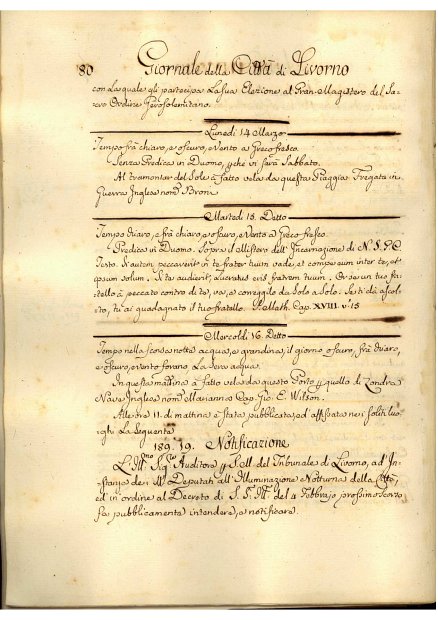 80 Giornale della Città di Livorno
con la quale gli partecipa la sua Elezione al Gran Magistero del Sa-
cro Ordine Gerosolimitano.
Lunedi 14 Marzo
Tempo frà chiaro, e oscuro, e Vento a Greco fresco.
Senza Predica in Duomo, che vi sarà Sabbato.
Al tramontar del Sole à fatto vela da questa Piaggia Fregata in
Guerra Inglese nom.
Martedi 15. Detto
Tempo chiaro, e frà chiaro, e oscuro, e Vento a Greco fresco.
Predica in Duomo. Sopra il Mistero dell' Incarnazione di N. S. G. C.
Testo. Si autem peccaverit in te frater tuus vade, et corripe eum inter te, et
ipsum solum. Si te audierit, lucratus eris fratrem tuum. Or se un tuo fra-
tello à peccato contro di te, va, e correggilo da Solo a Solo. Se ti dà ascol-
to, tu ai guadagnato il tuo fratello. S. Matth. Cap. XVIII. v. 15
Mercoldi 16. Detto
Tempo nella scorsa notte acqua, e grandina, il giorno oscuro, frà chiaro,
e oscuro, e Vento forano. La Sera acqua.
In questa mattina à fatto vela da questo Porto p quello di Londra
Nave Inglese nom. Marianna Cap. Gio. E. Wilson.
Alle ore 11. di mattina è stata pubblicata, ed affissata nei soliti luo-
ghi La Seguente
189. 19. Notificazione
L'Ill.mo Sig.re Auditore p S. M. del Tribunale di Livorno, ad In-
stanza dei SS. Deputati all' Illuminazione Notturna della Città,
ed in ordine al Decreto di S. S. Ill. del 4 Febbrajo prossimo scorso
fa pubblicamente intendere, e notificare.